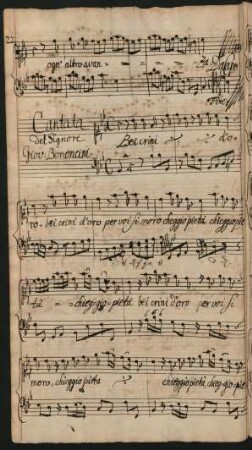 22
ogn' altro avan - - -
Fine
Cantata
del Signore
Giov: Bononcini
Bei crini d'o-
ro - bei crini d'oro per voi si moro chieggio pietà chieggio pie
tà - - chieggio pietà bei crini d'oro per voi si
moro, chieggio pietà chieggio pietà, chieggio pie